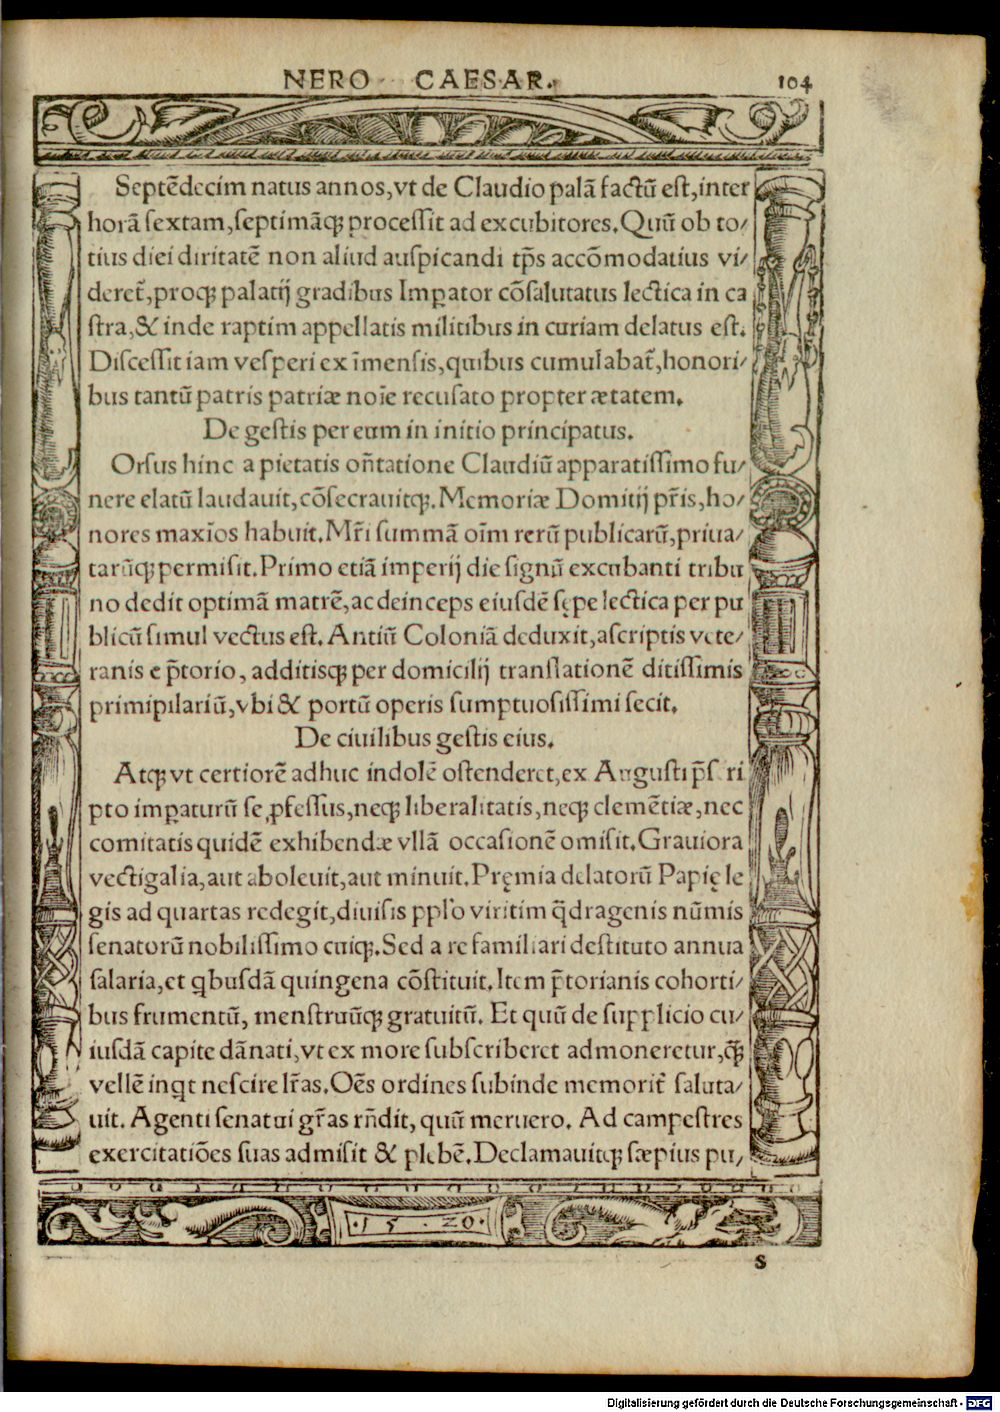 NERO CAESAR.
104
Septēdecim natus annos,vt de Claudio palā factū est,inter
horā sextam,septimāq; processit ad excubitores.Quū ob to/
tius diei diritatē non aliud auspicandi tp̄s accōmodatius vi/
deret̃,proq; palatij gradibus Imꝑator cōsalutatus lectica in ca
stra,& inde raptim appellatis militibus in curiam delatus est.
Discessit iam vesperi ex īmensis,quibus cumulabat̃,honori/
bus tantū patris patriæ noīe recusato propter ætatem.
De gestis per eum in initio principatus.
Orsus hinc a pietatis on̄tatione Claudiū apparatissimo fu/
nere elatū laudauit,cōsecrauitq;.Memoriæ Domitij pr̄is,ho/
nores maxīos habuit.Mr̄i summā oīm rerū publicarū,priua/
tarūq; permisit.Primo etiā imperij die signū excubanti tribu
no dedit optimā matrē,ac deinceps eiusdē sępe lectica per pu
blicū simul vectus est.Antiū Coloniā deduxit,ascriptis vete/
ranis e p̄torio,additisq; per domicilij translationē ditissimis
primipilariū,vbi & portū operis sumptuosissimi fecit.
De ciuilibus gestis eius.
Atq; vt certiorē adhuc indolē ostenderet,ex Augusti p̄scri
pto imꝑaturū se ꝓfessus,neq; liberalitatis,neq; clemētiæ,nec
comitatis quidē exhibendæ vllā occasionē omisit.Grauiora
vectigalia,aut aboleuit,aut minuit.Pręmia delatorū Papię le
gis ad quartas redegit,diuisis pplo viritim q̄dragenis nūmis
senatorū nobilissimo cuiq;.Sed a re familiari destituto annua
salaria,et qbusdā quingena cōstituit.Item p̄torianis cohorti/
bus frumentū, menstruūq; gratuitū. Et quū de supplicio cu/
iusdā capite dānati,vt ex more subscriberet admoneretur,q̄
vellē inqt nescire lr̄as.Oēs ordines subinde memorit̃ saluta/
uit. Agenti senatui gr̄as rn̄dit, quū meruero. Ad campestres
exercitatiōes suas admisit & plebē.Declamauitq; sæpius pu/
.15.20.
s
Digitalisierung gefördert durch die Deutsche Forschungsgemeinschaft - DFG